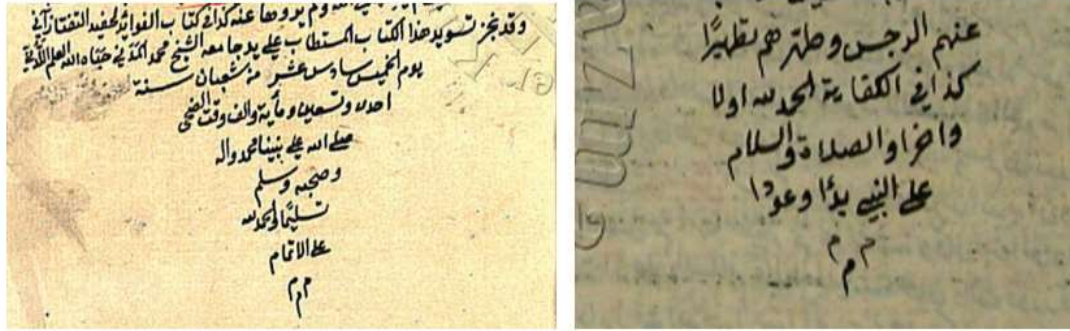 ولم يروها عنه كذا في كتاب الفوائد لحفيد التفتازاني
وقد نجز تسويد هذا الكتاب المستطاب علي يد جامعه الشيخ محمد
يوم الخميس سادس عشر من شعبان سنة
احدى وتسعين ومأية والف وقت الضحى
صلى الله علي نبينا محمد واله
وصحبه وسلم
تسليمًا والحمد لله
على الاتمام
م م م
عنهم الرجس وطهرهم تطهيرًا
كذا في الكفاية الحمد لله اولا
واخرا والصلاة والسلام
على النبي بدؤا وعودا
م م م